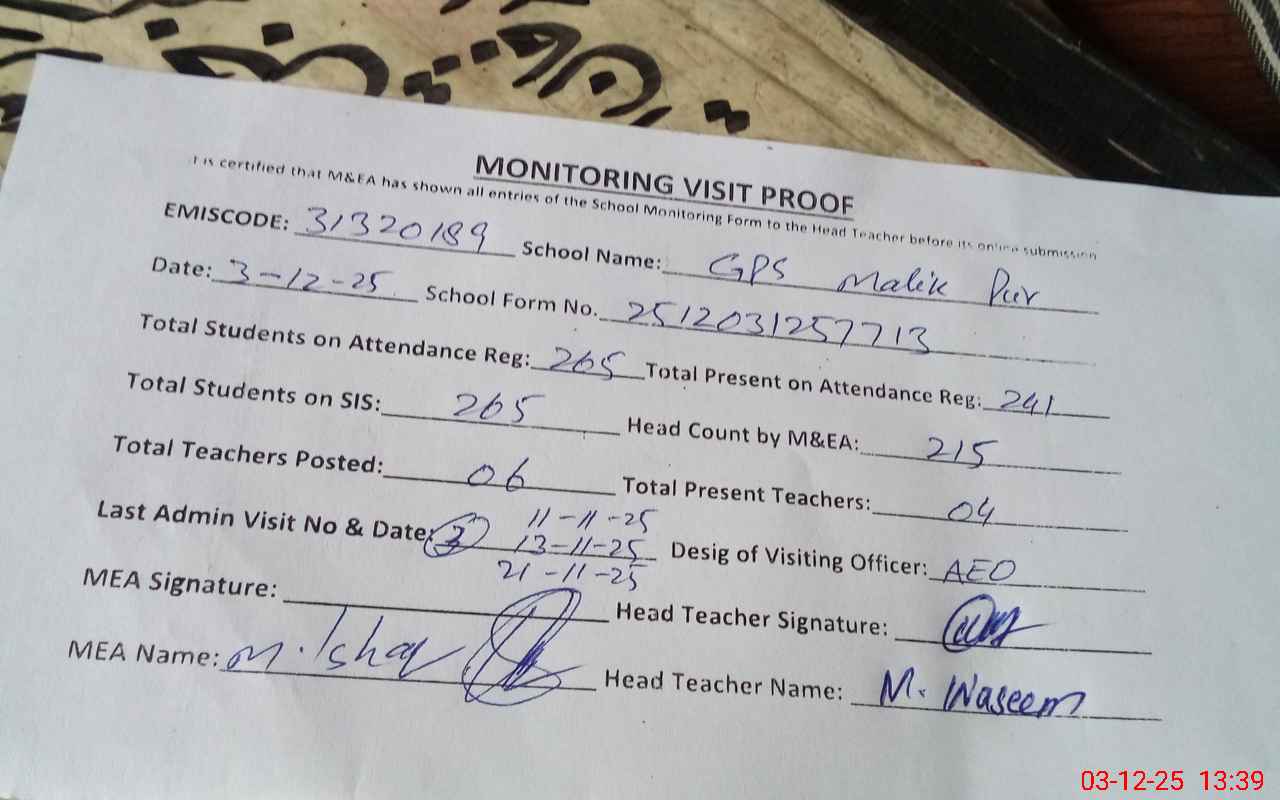 MONITORING VISIT PROOF
It is certified that M&EA has shown all entries of the School Monitoring Form to the Head Teacher before its online submission
EMISCODE: 31320189 School Name: GPS Malik Pur
Date: 3-12-25 School Form No. 2512031257713
Total Students on Attendance Reg: 265 Total Present on Attendance Reg: 241
Total Students on SIS: 265 Head Count by M&EA: 215
Total Teachers Posted: 06 Total Present Teachers: 04
Last Admin Visit No & Date: 3 11-11-25
13-11-25 Desig of Visiting Officer: AEO
21-11-25
MEA Signature: Head Teacher Signature:
MEA Name: M. Ishaq Head Teacher Name: M. Waseem
03-12-25 13:39